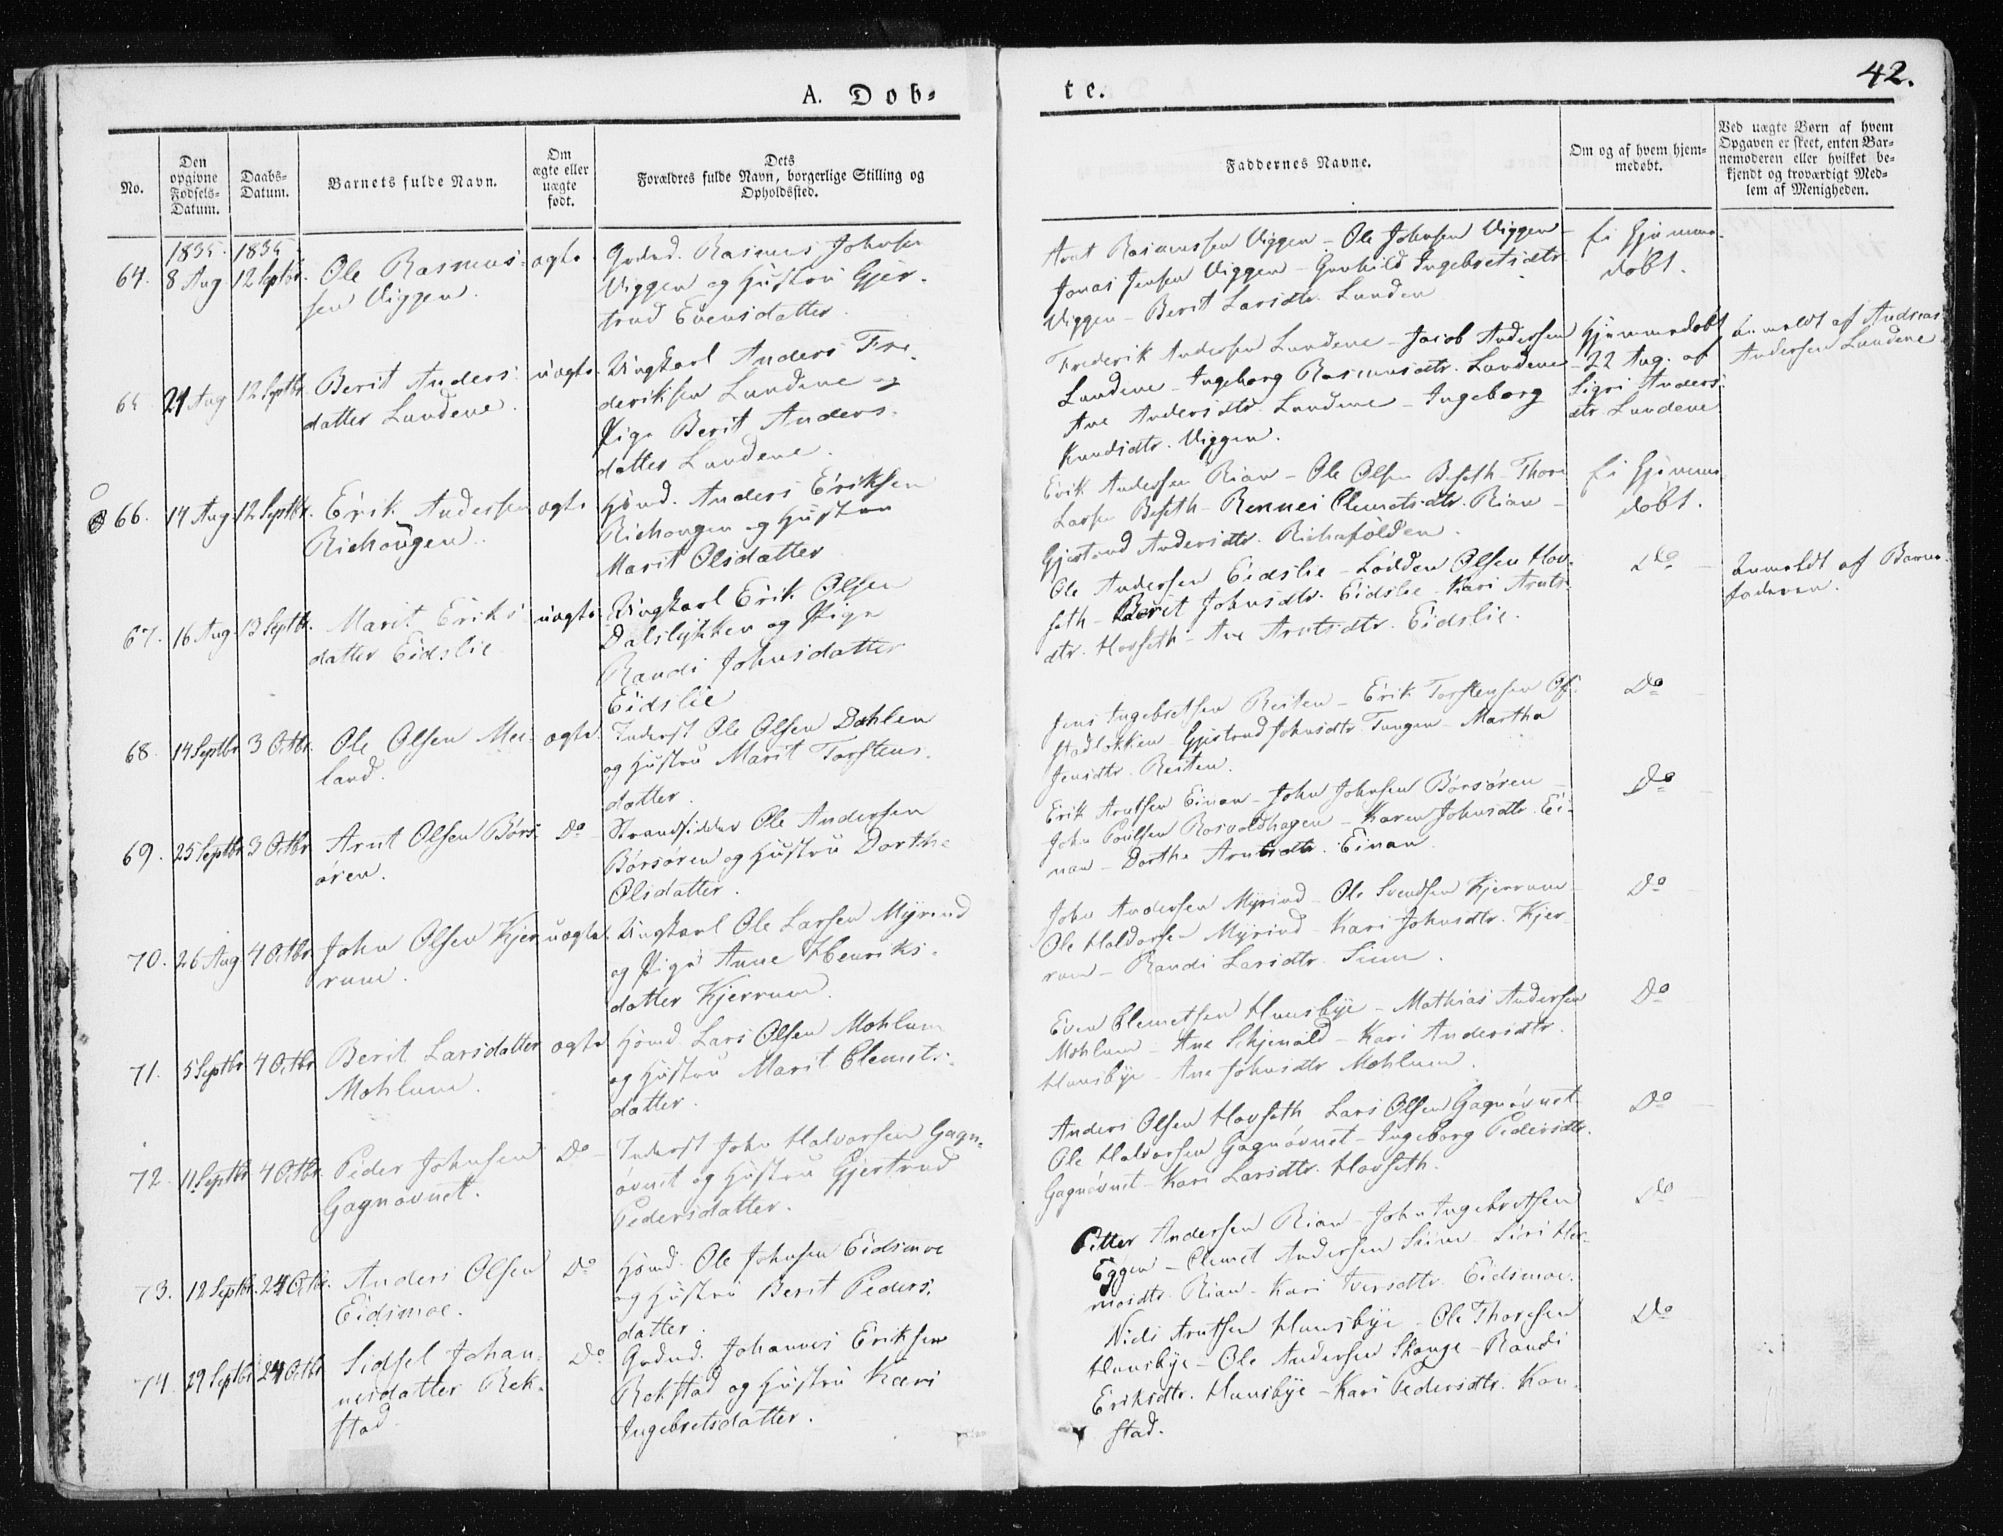 A. Døb-
te.
42.
No.
Den opgivne Fødsels-Datum.
Daabs-Datum.
Barnets fulde Navn.
Om ægte eller uægte født.
Dets Forældres fulde Navn, borgerlige Stilling og Opholdssted.
Faddernes Navne.
Om og af hvem hjemmedøbt.
Ved uægte Børn af hvem Opgaven er skeet, enten Barnemoderen eller hvilket bekjendt og troværdigt Medlem af Menigheden.
1835. 1835.
64. 8 Aug 12 Septbr. Ole Rasmus- ægte Grdmd. Rasmus Johnsen
sen Viggen. Viggen og Hustru Gjer-
trud Evensdatter.
Arnt Rasmussen Viggen - Ole Johnsen Viggen -
Jonas Jensen Viggen - Gunhild Ingebretsdtr.
Viggen - Berit Larsdtr. Lunden
Ei hjemme-
døbt.
65 21 Aug 12 Septbr. Berit Anders- uægte. Ungkarl Anders Fre-
datter Lundene. deriksen Lundene og
Pige Berit Anders-
datter Lundene.
Frederik Andersen Lundene - Jacob Andersen
Lundene - Ingeborg Rasmusdtr. Lundene -
Ane Andersdtr. Lundene - Ingeborg
Knudsdtr. Viggen.
Hjemmedøbt
22 Aug. af
Sigri Anders-
dtr. Lundene
Anmeldt af Andreas
Andersen Lundene.
66. 14 Aug. 12 Septbr. Erik Andersen ægte Hsmd. Anders Eriksen
Richaugen. Richaugen og Hustru
Marit Olsdatter
Erik Andersen Rian - Ole Olsen Beseth - Thore
Larsen Beseth - Rennei Clemetsdtr. Rian -
Gjertrud Andersdtr. Richafolden.
Ei hjemme
døbt.
67. 16 Aug. 13 Septbr. Marit Eriks- uægte. Ungkarl Erik Olsen
datter Eidslie Dalslykken og Pige
Randi Johnsdatter
Eidslie
Ole Andersen Eidslie - Lødden Olsen Hov-
seth - Beret Johnsdtr. Eidslie - Kari Arnts-
dtr. Hovseth - Ane Arntsdtr. Eidslie.
Do
Anmeldt af Barne-
faderen.
68. 14 Septbr 3 Octbr. Ole Olsen Mei- ægte. Inderst Ole Olsen Dahlen
land. og Hustru Marit Torstens-
datter.
Jens Ingebretsen Reiten - Erik Torstensen Of-
stadløkken - Gjertrud Johnsdtr. Tangen - Martha
Jensdtr. Reiten.
Do
69. 25 Septbr. 3 Octbr. Arnt Olsen Børs- Do - Strandsidder Ole Andersen
øren. Børsøren og Hustru Dorthe
Olsdatter.
Erik Arntsen Einan - John Johnsen Børsøren -
John Poulsen Rosvoldhagen - Karen Johnsdtr. Ei-
nan - Dorthe Arntsdtr. Einan.
Do
70. 26 Aug 4 Octbr. John Olsen Kjer- uægte. Ungkarl Ole Larsen Myrind
rum. og Pige Anne Henriks-
datter Kjerrum.
John Andersen Myrind - Ole Svendsen Kjerrum -
Ole Haldorsen Myrind - Kari Johnsdtr. Kjer-
rum - Randi Larsdtr. Siim.
Do
71. 5 Septbr 4 Octbr. Berit Larsdatter ægte Hsmd. Lars Olsen Mohlum
Mohlum. og Hustru Marit Clemets-
datter.
Even Clemetsen Huusbye - Mathias Andersen
Mohlum - Ane Schjenald - Kari Andersdtr.
Huusbye - Ane Johnsdtr Mohlum.
Do
72. 11 Septbr. 4 Octbr. Peder Johnsen Do - Inderst John Halvorsen Gagn-
Gagnøvnet. øvnet og Hustru Gjertrud
Pedersdatter.
Anders Olsen Hovseth - Lars Olsen Gagnøvnet -
Ole Haldorsen Gagnøvnet - Ingeborg Pedersdtr.
Gagnøvnet - Kari Larsdtr. Hovseth.
Do
73. 12 Septbr. 24 Octbr. Anders Olsen Do Hsmd. Ole Johnsen Eidsmoe
Eidsmoe. og Hustru Berit Peders-
datter.
Petter Andersen Rian - John Ingebretsen
Eggen - Clemet Andersen Siim - Siri Her-
mosdtr. Rian - Kari Iversdtr. Eidsmoe.
Do
74. 29 Septbr. 24 Octbr Sidsel Johan- Do Grdmd. Johannes Eriksen
nesdatter Rek- Rekstad og Hustru Kari
stad. Ingebretsdatter.
Niels Arntsen Huusbye - Ole Thoresen
Huusbye - Ole Andersen Skauge - Randi
Eriksdtr. Huusbye - Kari Pedersdtr. Kon-
stad.
Do